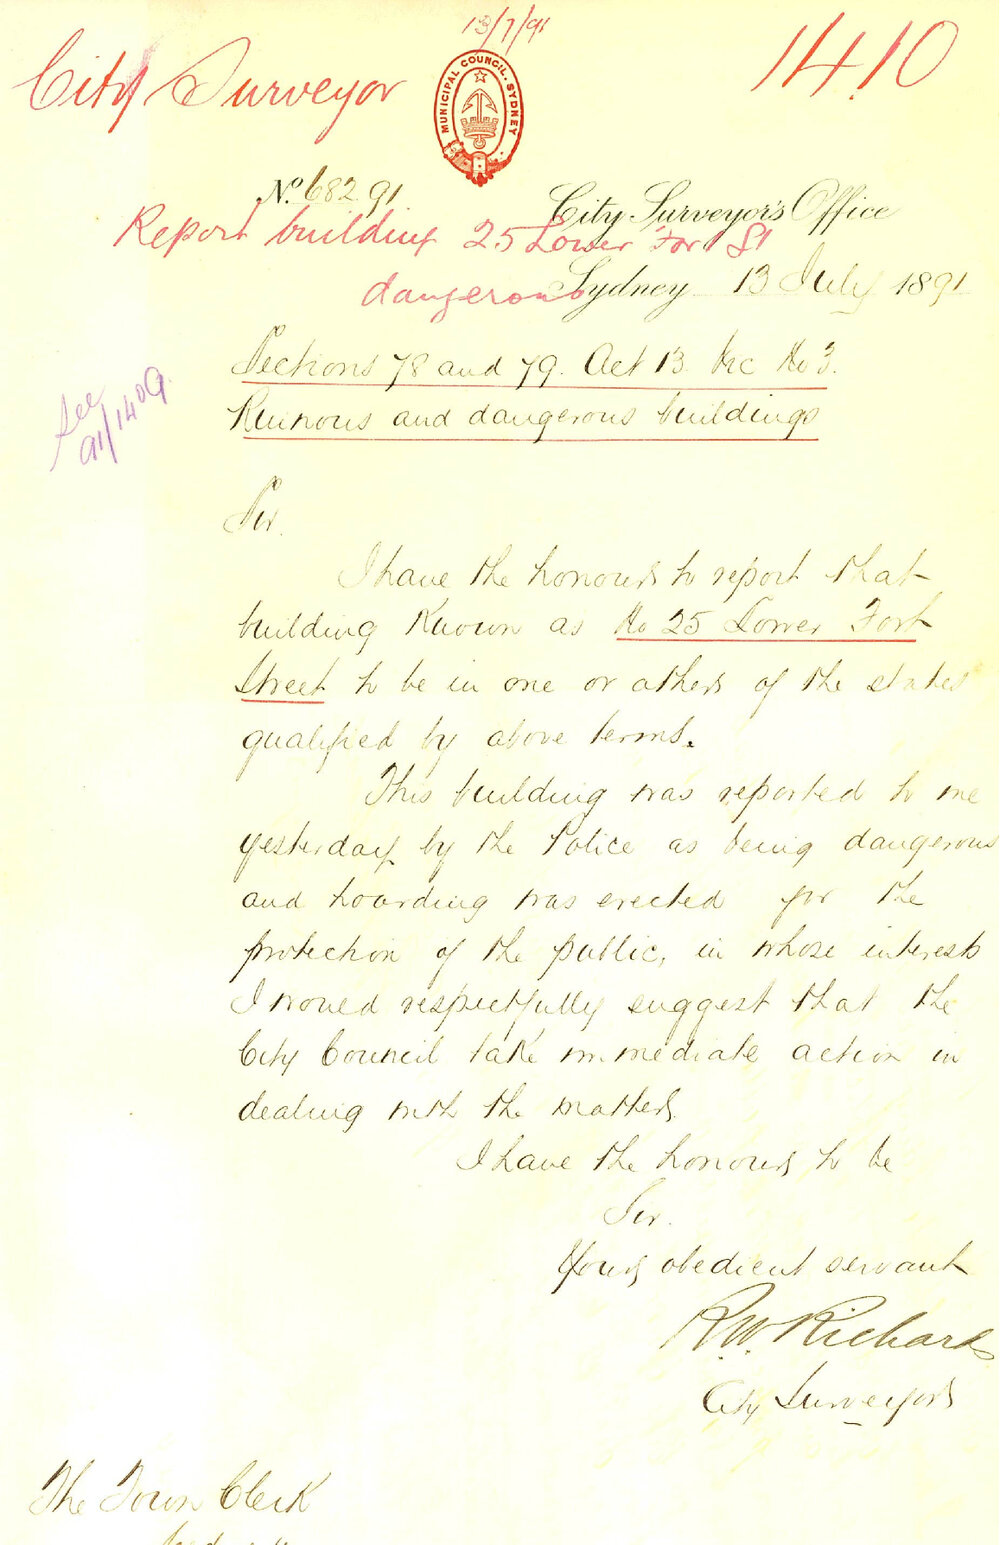 13/7/91
City Surveyor
1410
MUNICIPAL COUNCIL. SYDNEY
No. 682 91
City Surveyor's Office
Report building 25 Lower Fort St
dangerous
Sydney 13 July 1891
See
91/1409
Sections 78 and 79. Act 13. Vic No 3.
Ruinous and dangerous buildings
Sir.
I have the honour to report that
building known as No 25 Lower Fort
Street to be in one or other of the states
qualified by above terms.
This building was reported to me
yesterday by the Police as being dangerous
and hoarding was erected for the
protection of the public, in whose interests
I would respectfully suggest that the
City Council take immediate action in
dealing with the matter.
I have the honour to be
Sir.
Your obedient servant
R.W. Richards
City Surveyor
The Town Clerk